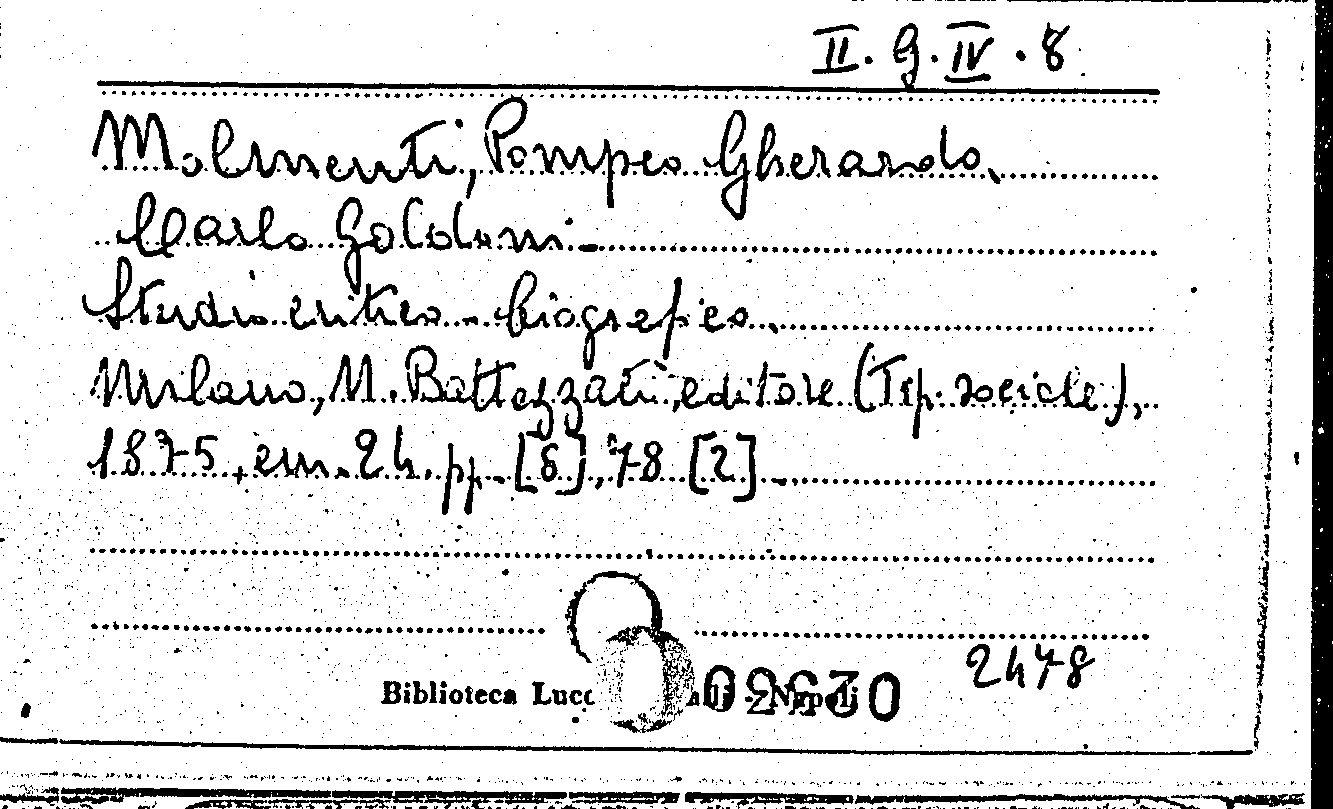 II. G. IV. 8
Molmenti, Pompeo Gherardo.
Carlo Goldoni.
Studio critico-biografico.
Milano, M. Battezzati, editore (Tip. sociale),
1875, cm. 24. pp. [6], 78 [2].
2478
Biblioteca Lucc Napoli
02630